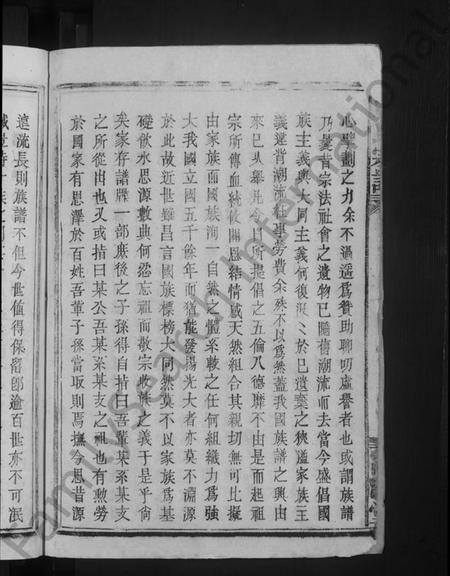 心擘劃之力余不過遙爲贊助聊叨虛譽者也或謂族譜
乃曩昔宗法社會之遺物已隨舊潮流而去當今盛倡國
族主義與大同主義何復汲汲於此已遺棄之狹隘家族主
義違背潮流事勞費余殊不以爲然蓋我國族譜之興由
來已久舉凡日所提倡之五倫八德靡不由是而起祖
宗所傳血統攸關恩結情感天然組合其親切無可比擬
由家族而國族洵一自然之體系較之任何組織力爲強
大我國立國五千餘年而猶能發揚光大者亦莫不淵源
於此故近世雖昌言國族標榜大同然莫不以家族爲基
礎飲水思源數典何忍忘祖而敬宗收族之義于是乎尙
矣家存譜牒一部厥後之子孫得自指曰吾輩某系某支
之所從由也又或指曰某公吾某系某支之祖也有勲勞
於國家有恩澤於百姓吾輩子孫當取則焉撫今思昔源
遠流長則族譜不但今世値得保留卽逾百世亦不可泯
Family Search International